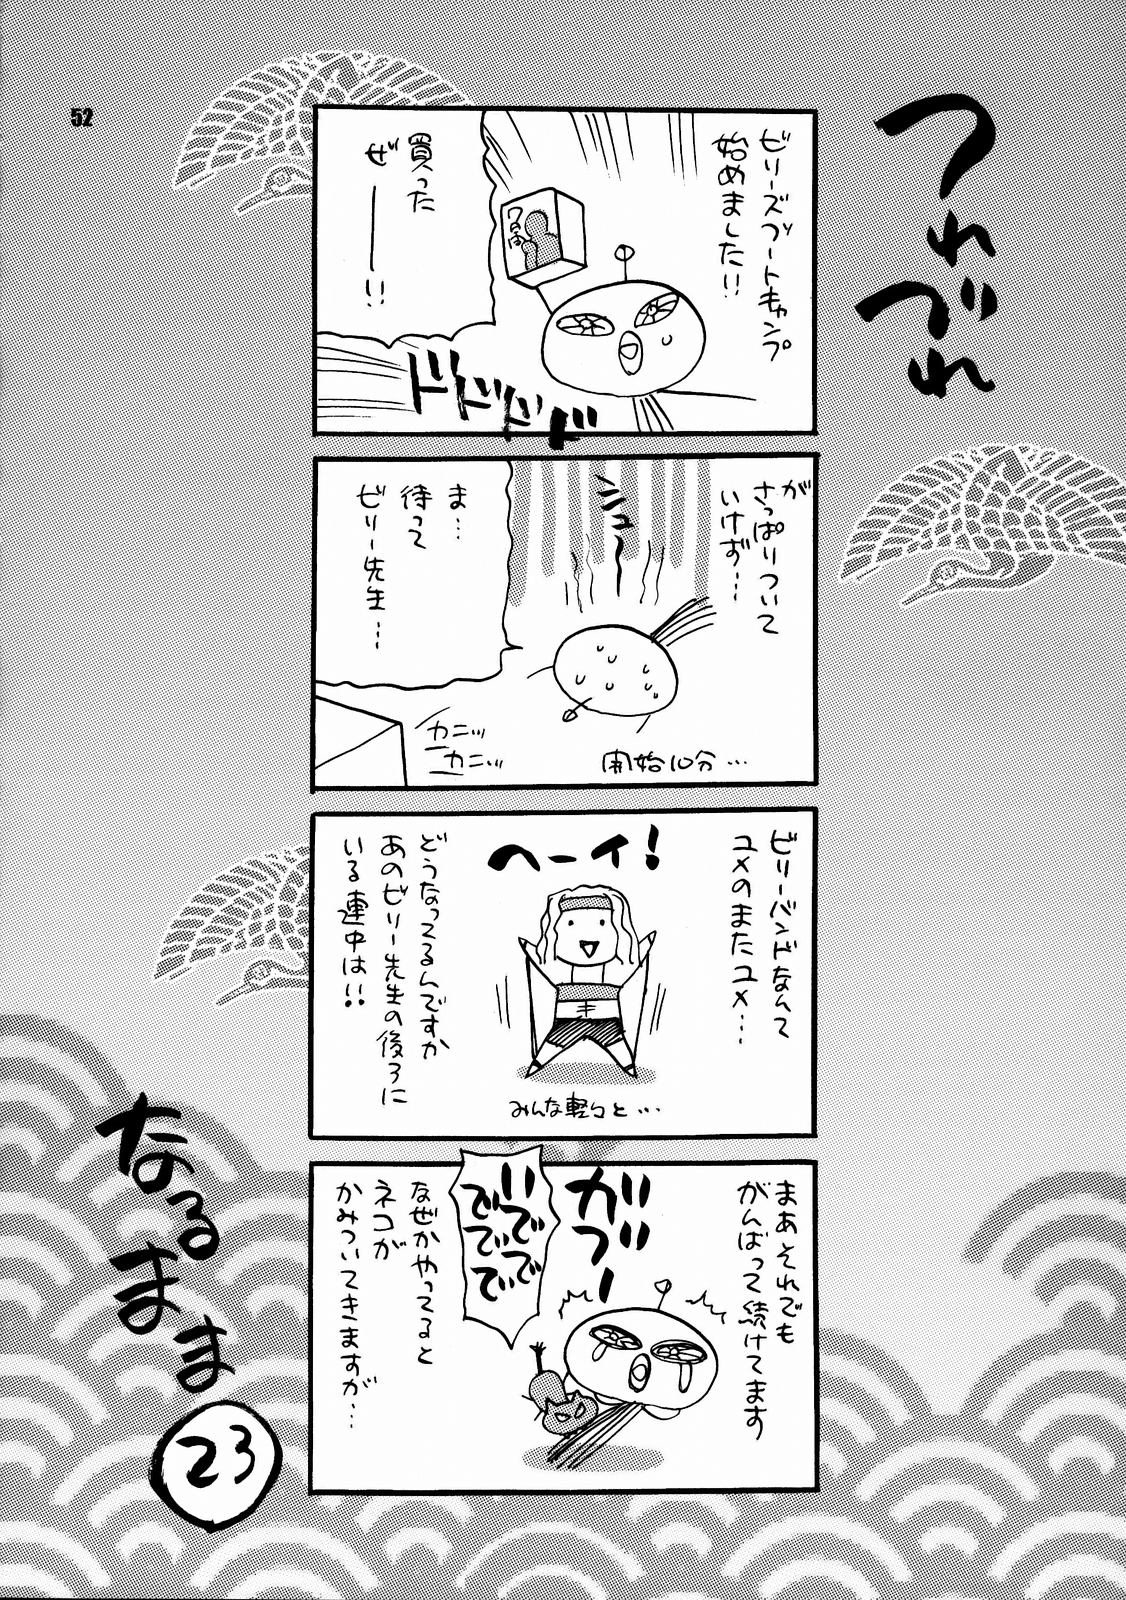 52
つれづれ
なるまま
23
ビリーズブートキャンプ
始めました!!
買った
ぜーー!!
ドドドド
が
さっぱりついて
いけず…
シュー
ま…
待って
ビリー先生…
カニッ
カニッ
開始10分…
ビリーバンドなんて
ユメのまたユメ…
ヘーイ!
どうなってるんですか
あのビリー先生の後ろに
いる連中は!!
みんな軽々と…
まあそれでも
がんばって続けてます
ガブー
いでで
でででで
なぜかやってると
ネコが
かみついてきますが…